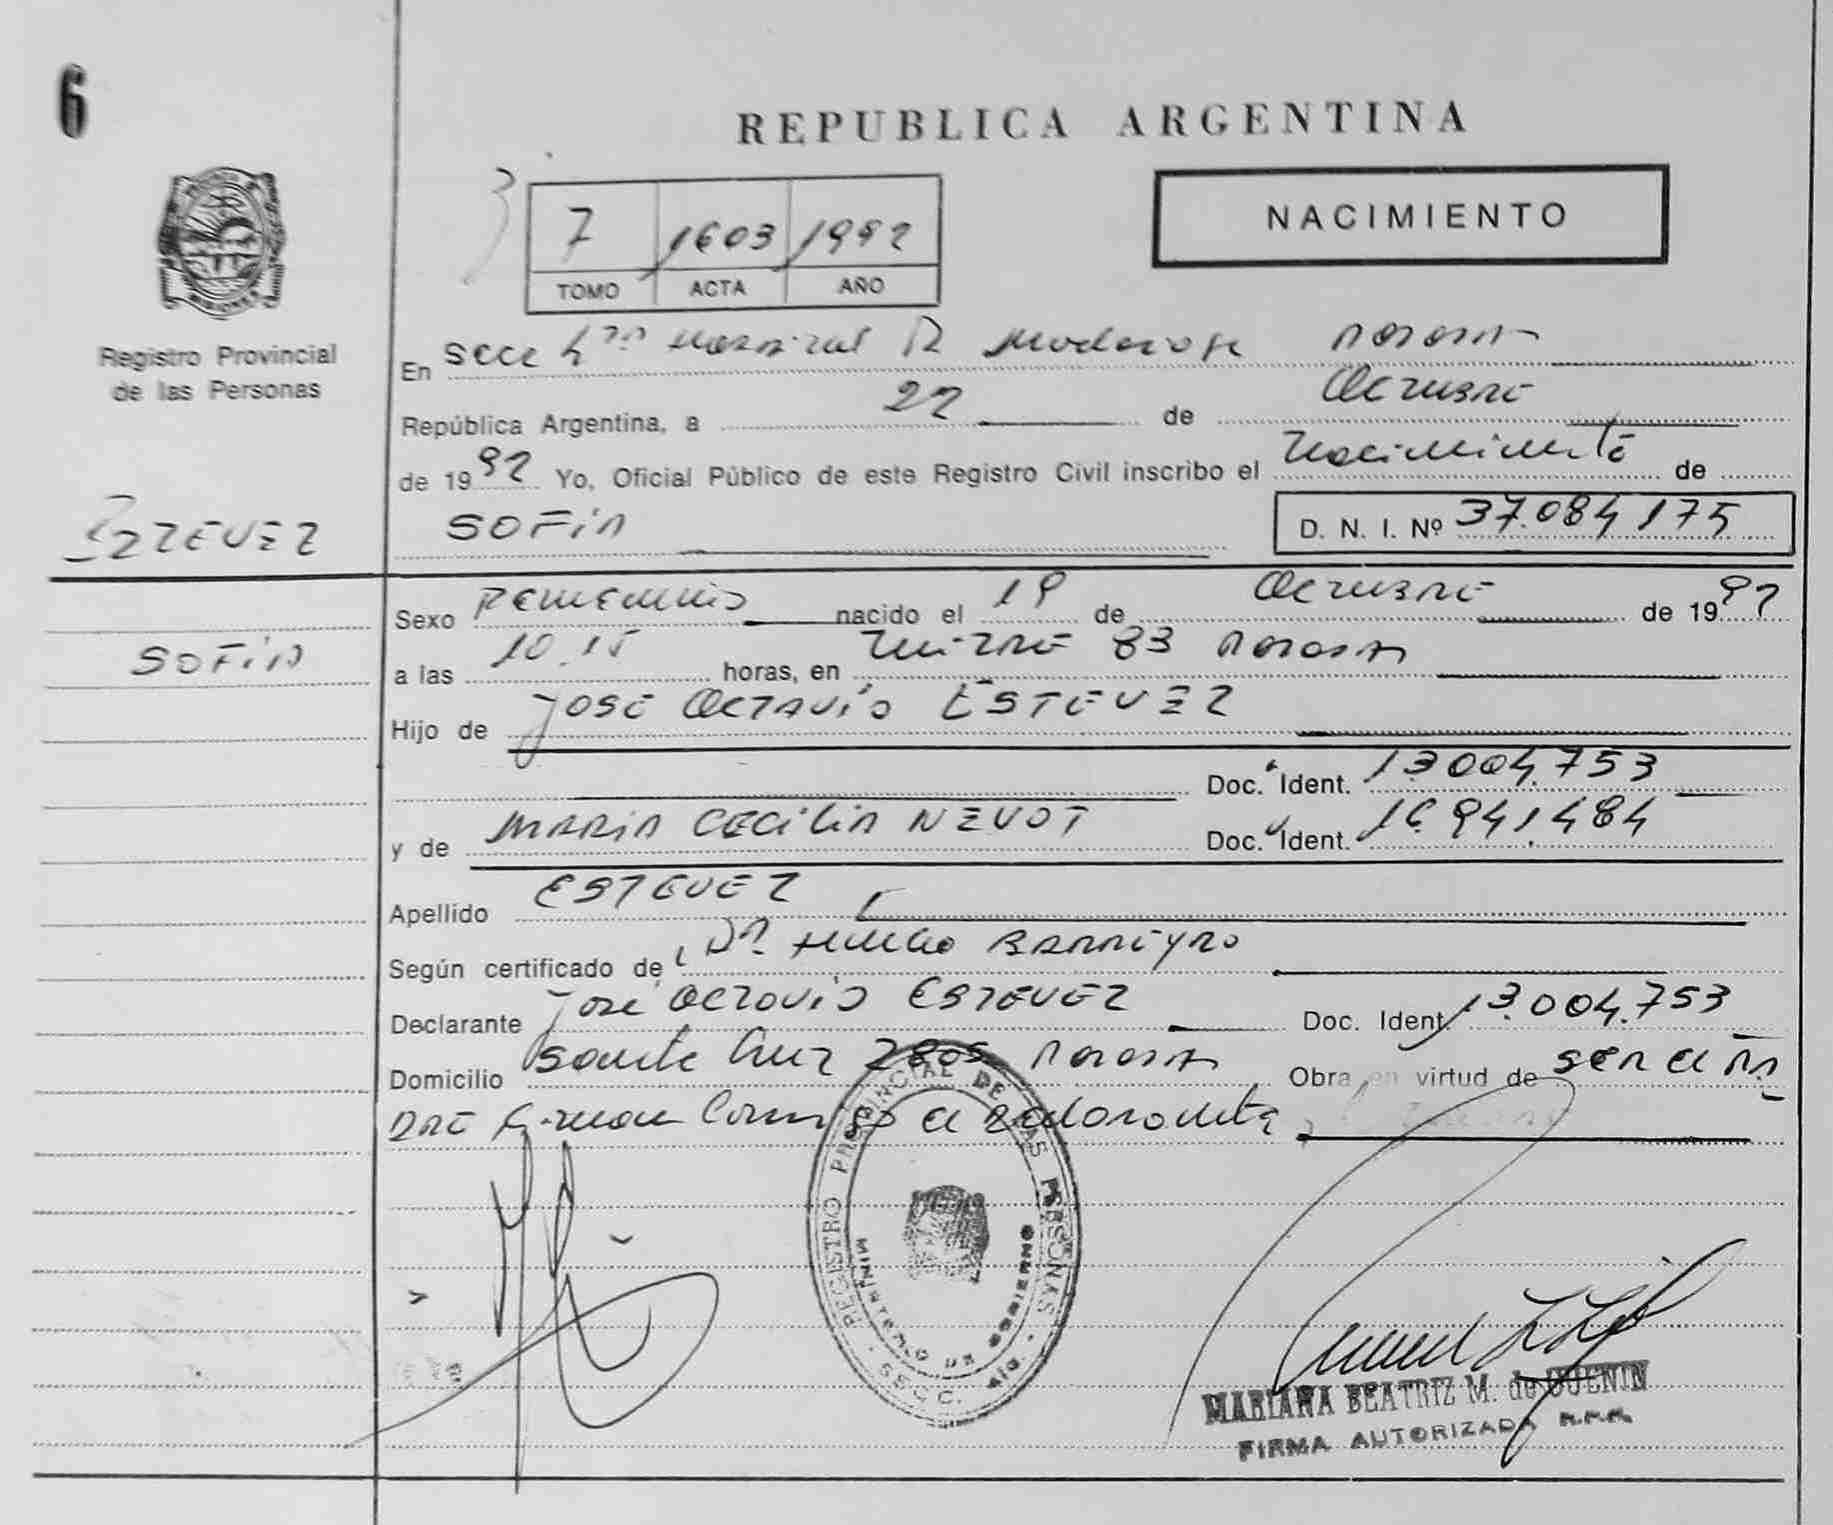 6
REPUBLICA ARGENTINA
NACIMIENTO
7 1603 1992
TOMO ACTA AÑO
MISIONES
Registro Provincial
de las Personas
En Secc 4ta Hospital R Madariaga Posadas
República Argentina, a 22 de Octubre
de 1992 Yo, Oficial Público de este Registro Civil inscribo el Nacimiento de
ESTEVEZ
SOFIA
D. N. I. Nº 37.084.175
SOFIA
Sexo Femenino nacido el 19 de Octubre de 1992
a las 10.15 horas, en Mitre 83 Posadas
Hijo de JOSE OCTAVIO ESTEVEZ
Doc. Ident. 13.004.753
y de MARIA CECILIA NEVOT Doc. Ident. 16.941.484
Apellido ESTEVEZ
Según certificado de Dr. Hugo BARREYRO
Declarante José OCTAVIO ESTEVEZ Doc. Ident. 13.004.753
Domicilio Santa Cruz 2805 Posadas Obra en virtud de ser el PA
DRE Firman Conmigo el declarante
REGISTRO PROVINCIAL DE LAS PERSONAS
MINISTERIO DE GOBIERNO
SECC. 4ta.
MARIANA BEATRIZ M. de GUENIN
FIRMA AUTORIZADA R.P.P.